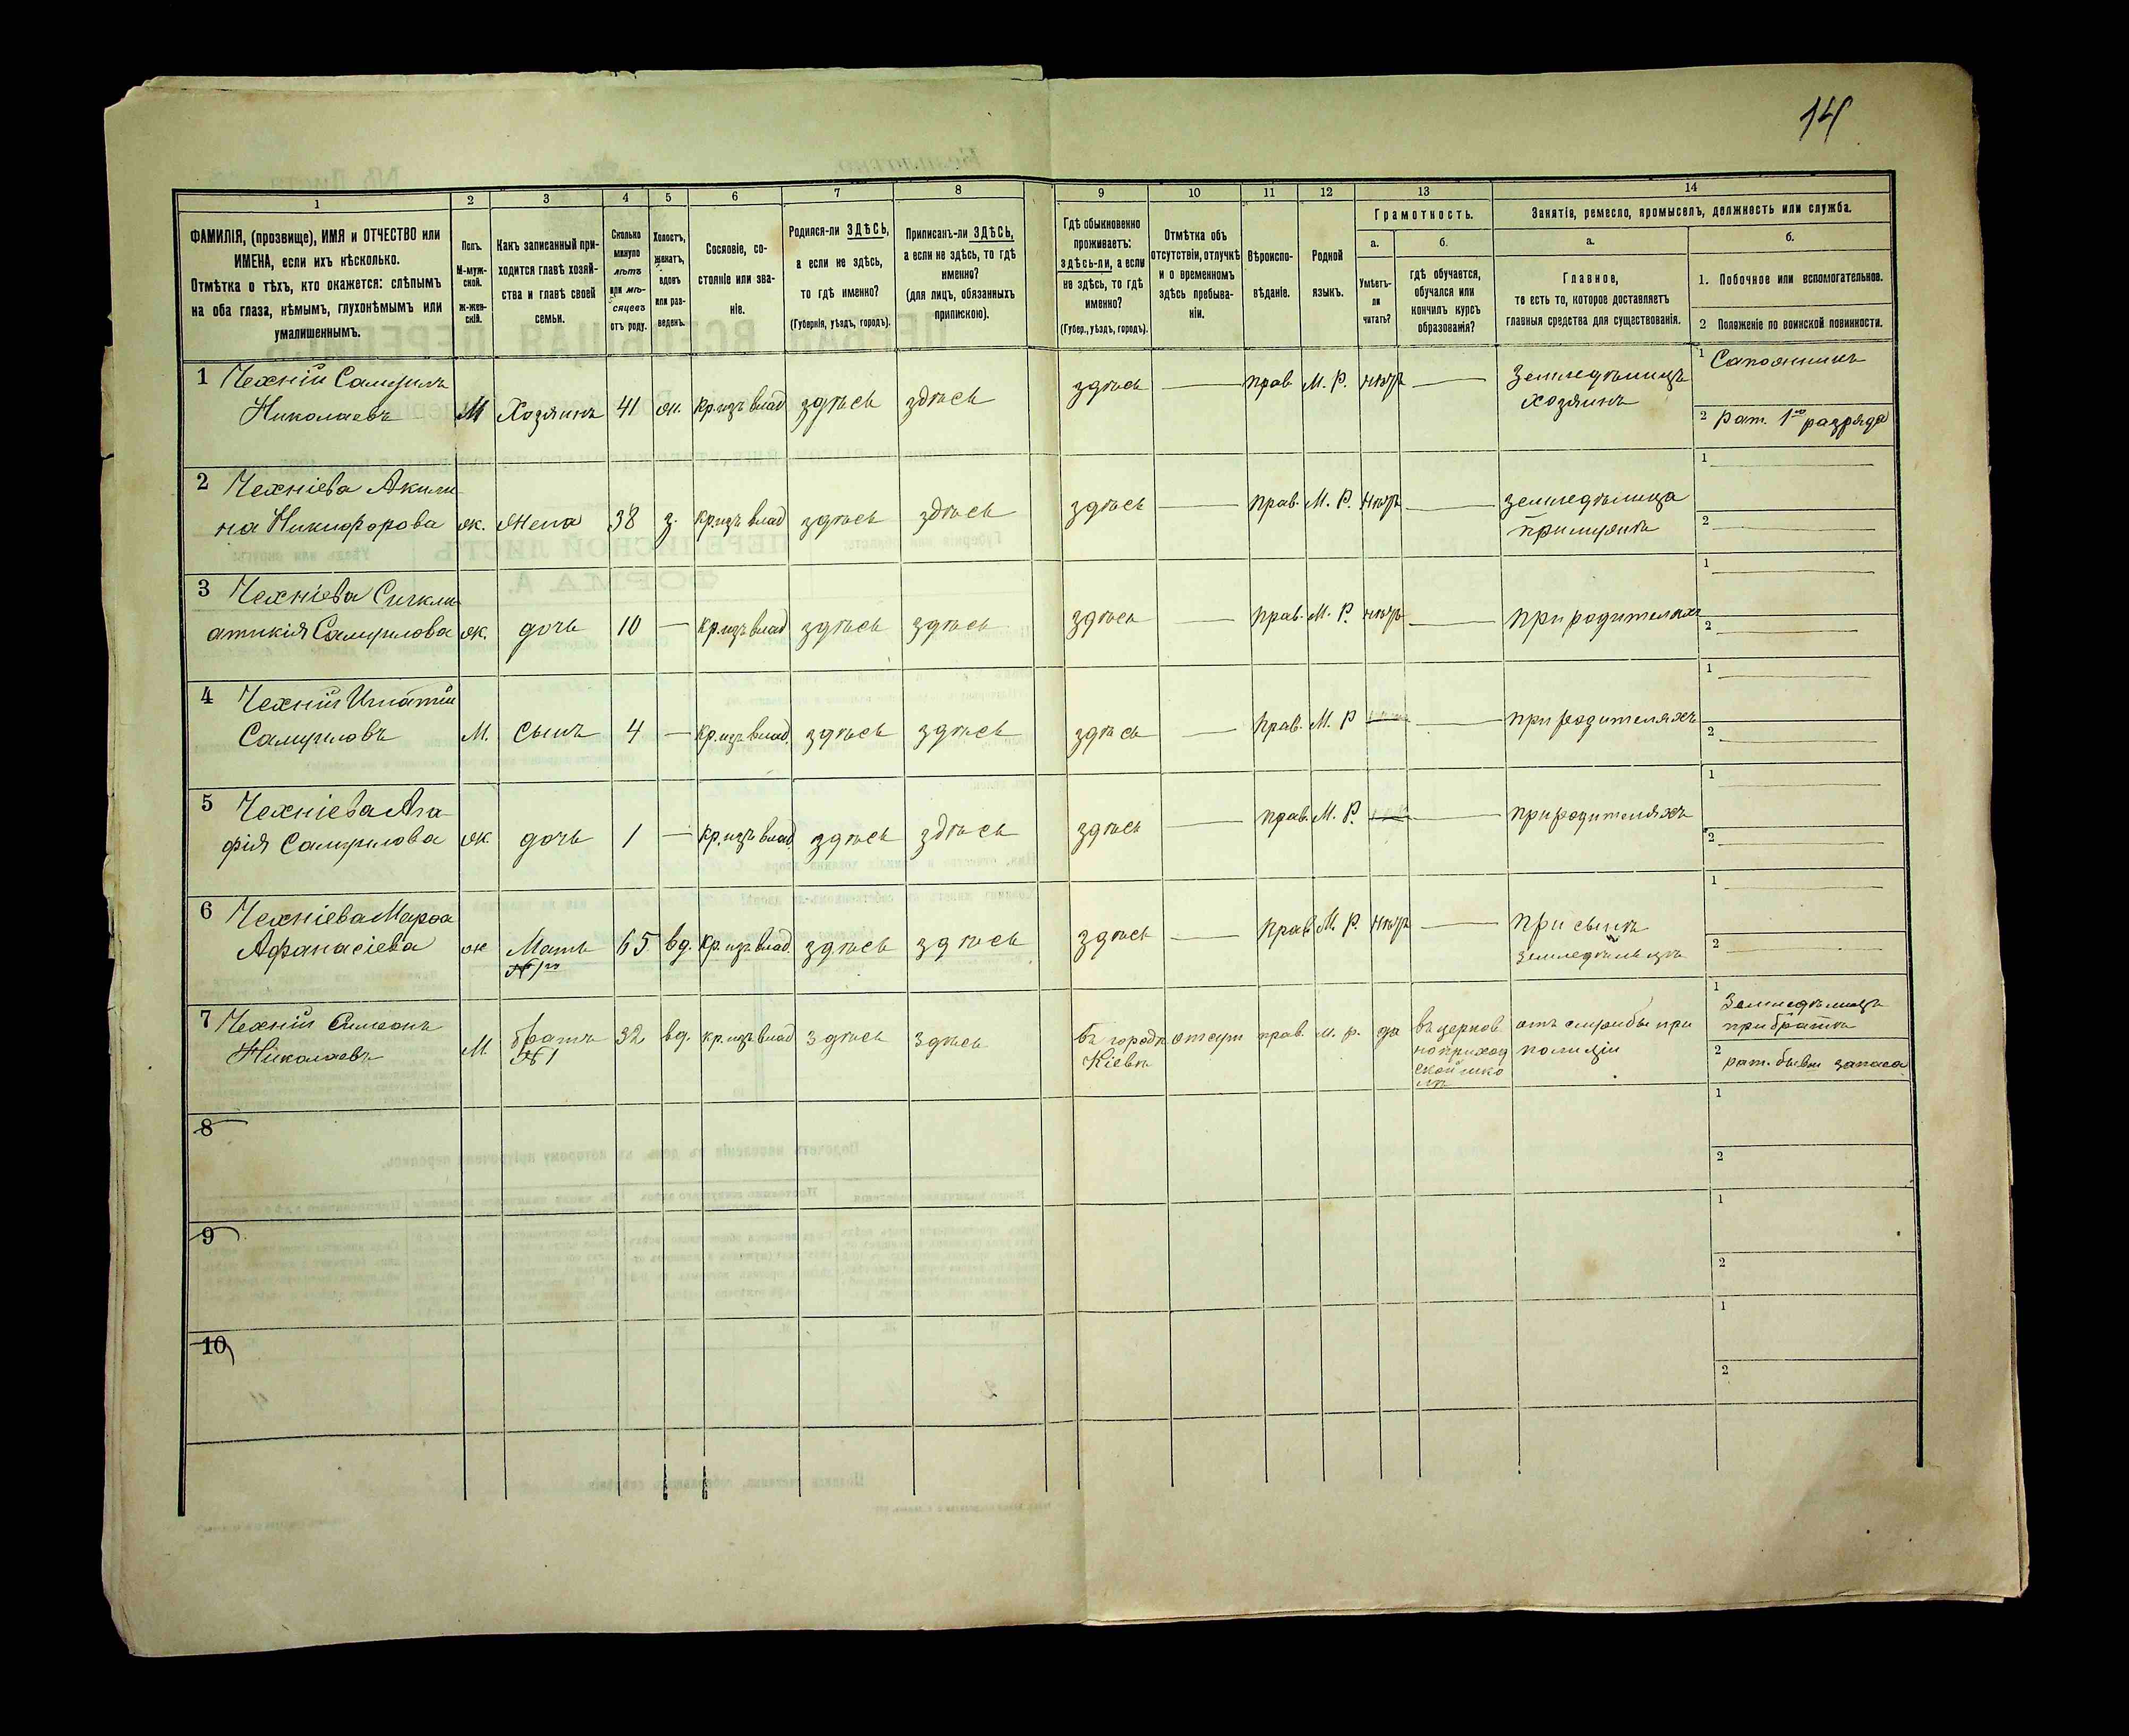 14
1
2
3
4
5
6
7
8
9
10
11
12
13
14
ФАМИЛІЯ, (прозвище), ИМЯ и ОТЧЕСТВО или
ИМЕНА, если ихъ нѣсколько.
Отмѣтка о тѣхъ, кто окажется: слѣпымъ
на оба глаза, нѣмымъ, глухонѣмымъ или
умалишеннымъ.
Полъ.
М-муж-
ской.
Ж-жен-
скій.
Какъ записанный при-
ходится главѣ хозяй-
ства и главѣ своей
семьи.
Сколько
минуло
лѣтъ
или мѣ-
сяцевъ
отъ роду.
Холостъ,
женатъ,
вдовъ
или раз-
веденъ.
Сословіе, со-
стояніе или зва-
ніе.
Родился-ли ЗДѢСЬ,
а если не здѣсь,
то гдѣ именно?
(Губернія, уѣздъ, городъ).
Приписанъ-ли ЗДѢСЬ,
а если не здѣсь, то гдѣ
именно?
(для лицъ, обязанныхъ
припискою).
Гдѣ обыкновенно
проживаетъ:
здѣсь-ли, а если
не здѣсь, то гдѣ
именно?
(Губер., уѣздъ, городъ).
Отмѣтка объ
отсутствіи, отлучкѣ
и о временномъ
здѣсь пребыва-
ніи.
Вѣроиспо-
вѣданіе.
Родной
языкъ.
Грамотность.
а.
Умѣетъ-
ли
читать?
б.
гдѣ обучается,
обучался или
кончилъ курсъ
образованія?
Занятіе, ремесло, промыселъ, должность или служба.
а.
Главное,
то есть то, которое доставляетъ
главныя средства для существованія.
б.
1. Побочное или вспомогательное.
2 Положеніе по воинской повинности.
1 Чехній Самуилъ
Николаевъ М Хозяинъ 41 ж. кр. изъ влад здѣсь здѣсь здѣсь — прав М. Р. нѣтъ — Земледѣлецъ
хозяинъ
1 Сапожникъ
2 рат. 1го разряда
2 Чехніева Акили-
на Никифорова ж. жена 38 з. кр. изъ влад здѣсь здѣсь здѣсь — прав. М. Р. нѣтъ — земледѣлица
при мужѣ
1 —
2 —
3 Чехніева Сигкли-
атикія Самуилова ж. дочь 10 — кр. изъ влад здѣсь здѣсь здѣсь — прав. М. Р. нѣтъ — при родителяхъ
1 —
2 —
4 Чехній Игнатій
Самуиловъ М. сынъ 4 — кр. изъ влад. здѣсь здѣсь здѣсь — прав. М. Р — при родителяхъ
1 —
2 —
5 Чехніева Ага-
фія Самуилова ж. дочь 1 — кр. изъ влад. здѣсь здѣсь здѣсь — прав. М. Р. — при родителяхъ
1 —
2 —
6 Чехніева Марѳа
Афанасіева ж Мать 65 вд. кр. изъ влад. здѣсь здѣсь здѣсь — прав М. Р. нѣтъ — при сынѣ
№ 1го
земледѣльцѣ
1 —
2 —
7 Чехній Симеонъ
Николаевъ М. братъ 32 вд. кр. изъ влад здѣсь здѣсь въ городѣ отсут прав. м. р. да въ церков отъ службы при
№ 1
Кіевѣ
ноприход полиціи
ской шко
лѣ
1 Земледѣлецъ
при братѣ
2 рат. бывш запаса
8
1
2
9
1
2
10
1
2